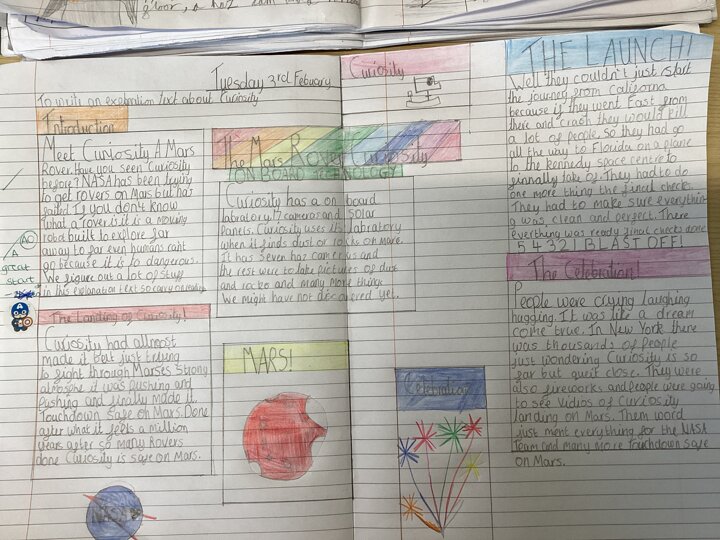 Tuesday 3rd Febuary
To write an explanation text about Curiosity
Introduction
Meet Curiosity A Mars
Rover. Have you seen Curiosity
before? NASA has been trying
to get rovers on Mars but has
failed If you don't know
what a rover is it is a moving
robot built to explore far
away to far even humans cant
go because it is to dangerous.
We figure out a lot of stuff
in this explanation text so carry on reading
AO
A
great
start
The Landing of Curiosity!
Curiosity had allmost
made it but just trying
to fight through Marses strong
atmosphe it was pushing and
pushing and finally made it.
Touchdown safe on Mars. Done
after what it feels a million
years after so many Rovers
done Curiosity is safe on Mars.
NASA
The Mars Rover Curiosity
ON BOARD TECHNOLOGY
Curiosity has a on board
labratory, 17 cameras and solar
Panels. Curiosity uses its labratory
when it finds dust or rocks on Mars.
It has 5ever haz cameras and
the rest were to take pictures of dust
and rocks and many more things
We might have not decovered yet.
MARS!
Curiosity
Celebration
THE LAUNCH!
Well they couldn't just start
the journey from Californa
because if they went East from
there and crash they would kill
a lot of people. So they had go
all the way to Florida on a plane
to the kennedy space centre to
finnally take of. They had to do
one more thing the final checks.
They had to make sure everything
was clean and perfect. There
everthing was ready final checks done
5 4 3 2 1 BLAST OFF!
The Celebration!
People were crying laughing
hugging. It was like a dream
come true. In New York there
was thousands of people
just wondering Curiosity is so
far but quiet close. They were
also fireworks and people were going
to see Videos of Curiosity
landing on Mars. Them word
just ment everything for the NASA
Team and many more Touchdown safe
on Mars.